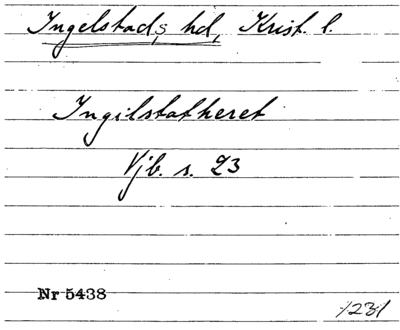 Ingelstads hd, Krist. l.
Ingilstatheret
Vjb. s. 23
Nr 5438
1231